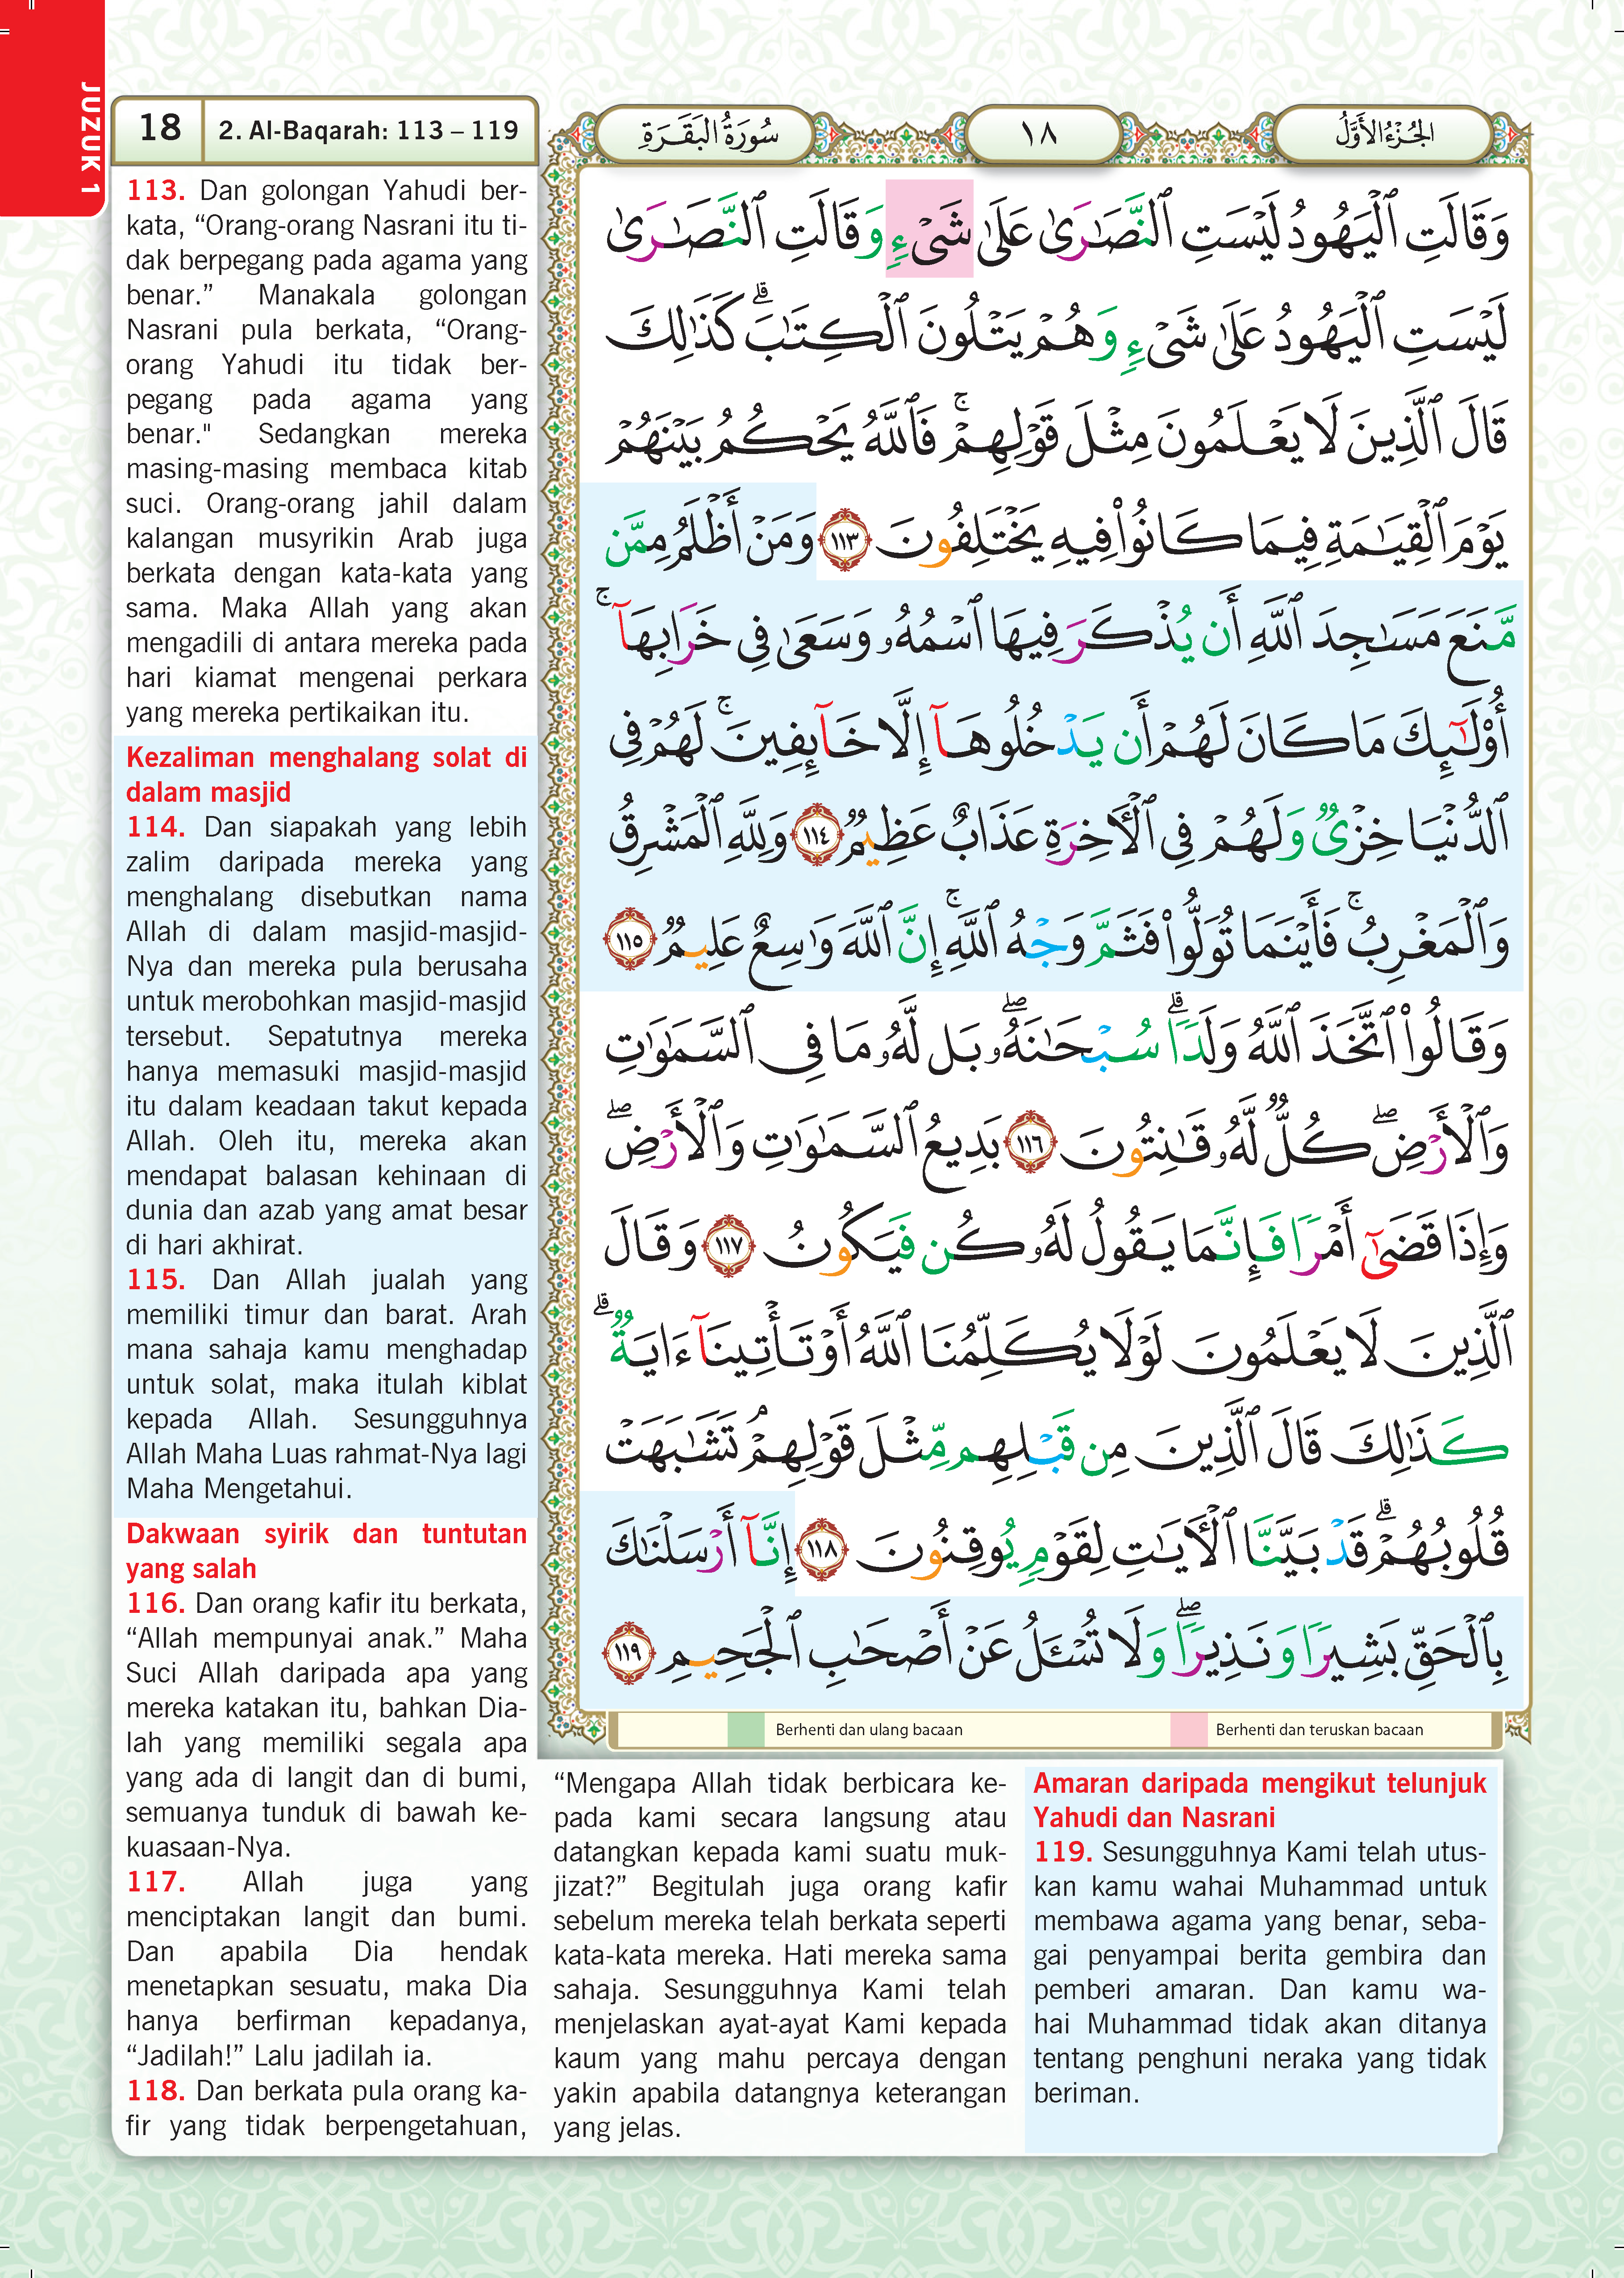 JUZUK 1
18
2. Al-Baqarah: 113 – 119
سُورَةُ الْبَقَرَةِ
١٨
الجُزْءُ الأَوَّلُ
113. Dan golongan Yahudi ber-
kata, “Orang-orang Nasrani itu ti-
dak berpegang pada agama yang
benar.” Manakala golongan
Nasrani pula berkata, “Orang-
orang Yahudi itu tidak ber-
pegang pada agama yang
benar." Sedangkan mereka
masing-masing membaca kitab
suci. Orang-orang jahil dalam
kalangan musyrikin Arab juga
berkata dengan kata-kata yang
sama. Maka Allah yang akan
mengadili di antara mereka pada
hari kiamat mengenai perkara
yang mereka pertikaikan itu.
Kezaliman menghalang solat di
dalam masjid
114. Dan siapakah yang lebih
zalim daripada mereka yang
menghalang disebutkan nama
Allah di dalam masjid-masjid-
Nya dan mereka pula berusaha
untuk merobohkan masjid-masjid
tersebut. Sepatutnya mereka
hanya memasuki masjid-masjid
itu dalam keadaan takut kepada
Allah. Oleh itu, mereka akan
mendapat balasan kehinaan di
dunia dan azab yang amat besar
di hari akhirat.
115. Dan Allah jualah yang
memiliki timur dan barat. Arah
mana sahaja kamu menghadap
untuk solat, maka itulah kiblat
kepada Allah. Sesungguhnya
Allah Maha Luas rahmat-Nya lagi
Maha Mengetahui.
Dakwaan syirik dan tuntutan
yang salah
116. Dan orang kafir itu berkata,
“Allah mempunyai anak.” Maha
Suci Allah daripada apa yang
mereka katakan itu, bahkan Dia-
lah yang memiliki segala apa
yang ada di langit dan di bumi,
semuanya tunduk di bawah ke-
kuasaan-Nya.
117. Allah juga yang
menciptakan langit dan bumi.
Dan apabila Dia hendak
menetapkan sesuatu, maka Dia
hanya berfirman kepadanya,
“Jadilah!” Lalu jadilah ia.
118. Dan berkata pula orang ka-
fir yang tidak berpengetahuan,
وَقَالَتِ ٱلْيَهُودُ لَيْسَتِ ٱلنَّصَـٰرَىٰ عَلَىٰ شَىْءٍ وَقَالَتِ ٱلنَّصَـٰرَىٰ
لَيْسَتِ ٱلْيَهُودُ عَلَىٰ شَىْءٍ وَهُمْ يَتْلُونَ ٱلْكِتَـٰبَ ۗ كَذَٰلِكَ
قَالَ ٱلَّذِينَ لَا يَعْلَمُونَ مِثْلَ قَوْلِهِمْ ۚ فَٱللَّهُ يَحْكُمُ بَيْنَهُمْ
يَوْمَ ٱلْقِيَـٰمَةِ فِيمَا كَانُوا۟ فِيهِ يَخْتَلِفُونَ ١١٣ وَمَنْ أَظْلَمُ مِمَّن
مَّنَعَ مَسَـٰجِدَ ٱللَّهِ أَن يُذْكَرَ فِيهَا ٱسْمُهُۥ وَسَعَىٰ فِى خَرَابِهَآ ۚ
أُو۟لَـٰٓئِكَ مَا كَانَ لَهُمْ أَن يَدْخُلُوهَآ إِلَّا خَآئِفِينَ ۚ لَهُمْ فِى
ٱلدُّنْيَا خِزْىٌ وَلَهُمْ فِى ٱلْـَٔاخِرَةِ عَذَابٌ عَظِيمٌ ١١٤ وَلِلَّهِ ٱلْمَشْرِقُ
وَٱلْمَغْرِبُ ۚ فَأَيْنَمَا تُوَلُّوا۟ فَثَمَّ وَجْهُ ٱللَّهِ ۚ إِنَّ ٱللَّهَ وَٰسِعٌ عَلِيمٌ ١١٥
وَقَالُوا۟ ٱتَّخَذَ ٱللَّهُ وَلَدًا ۗ سُبْحَـٰنَهُۥ ۖ بَل لَّهُۥ مَا فِى ٱلسَّمَـٰوَٰتِ
وَٱلْأَرْضِ ۖ كُلٌّ لَّهُۥ قَـٰنِتُونَ ١١٦ بَدِيعُ ٱلسَّمَـٰوَٰتِ وَٱلْأَرْضِ ۖ
وَإِذَا قَضَىٰٓ أَمْرًا فَإِنَّمَا يَقُولُ لَهُۥ كُن فَيَكُونُ ١١٧ وَقَالَ
ٱلَّذِينَ لَا يَعْلَمُونَ لَوْلَا يُكَلِّمُنَا ٱللَّهُ أَوْ تَأْتِينَآ ءَايَةٌ ۗ
كَذَٰلِكَ قَالَ ٱلَّذِينَ مِن قَبْلِهِم مِّثْلَ قَوْلِهِمْ ۘ تَشَـٰبَهَتْ
قُلُوبُهُمْ ۗ قَدْ بَيَّنَّا ٱلْـَٔايَـٰتِ لِقَوْمٍ يُوقِنُونَ ١١٨ إِنَّآ أَرْسَلْنَـٰكَ
بِٱلْحَقِّ بَشِيرًا وَنَذِيرًا ۖ وَلَا تُسْـَٔلُ عَنْ أَصْحَـٰبِ ٱلْجَحِيمِ ١١٩
Berhenti dan ulang bacaan
Berhenti dan teruskan bacaan
“Mengapa Allah tidak berbicara ke-
pada kami secara langsung atau
datangkan kepada kami suatu muk-
jizat?” Begitulah juga orang kafir
sebelum mereka telah berkata seperti
kata-kata mereka. Hati mereka sama
sahaja. Sesungguhnya Kami telah
menjelaskan ayat-ayat Kami kepada
kaum yang mahu percaya dengan
yakin apabila datangnya keterangan
yang jelas.
Amaran daripada mengikut telunjuk
Yahudi dan Nasrani
119. Sesungguhnya Kami telah utus-
kan kamu wahai Muhammad untuk
membawa agama yang benar, seba-
gai penyampai berita gembira dan
pemberi amaran. Dan kamu wa-
hai Muhammad tidak akan ditanya
tentang penghuni neraka yang tidak
beriman.